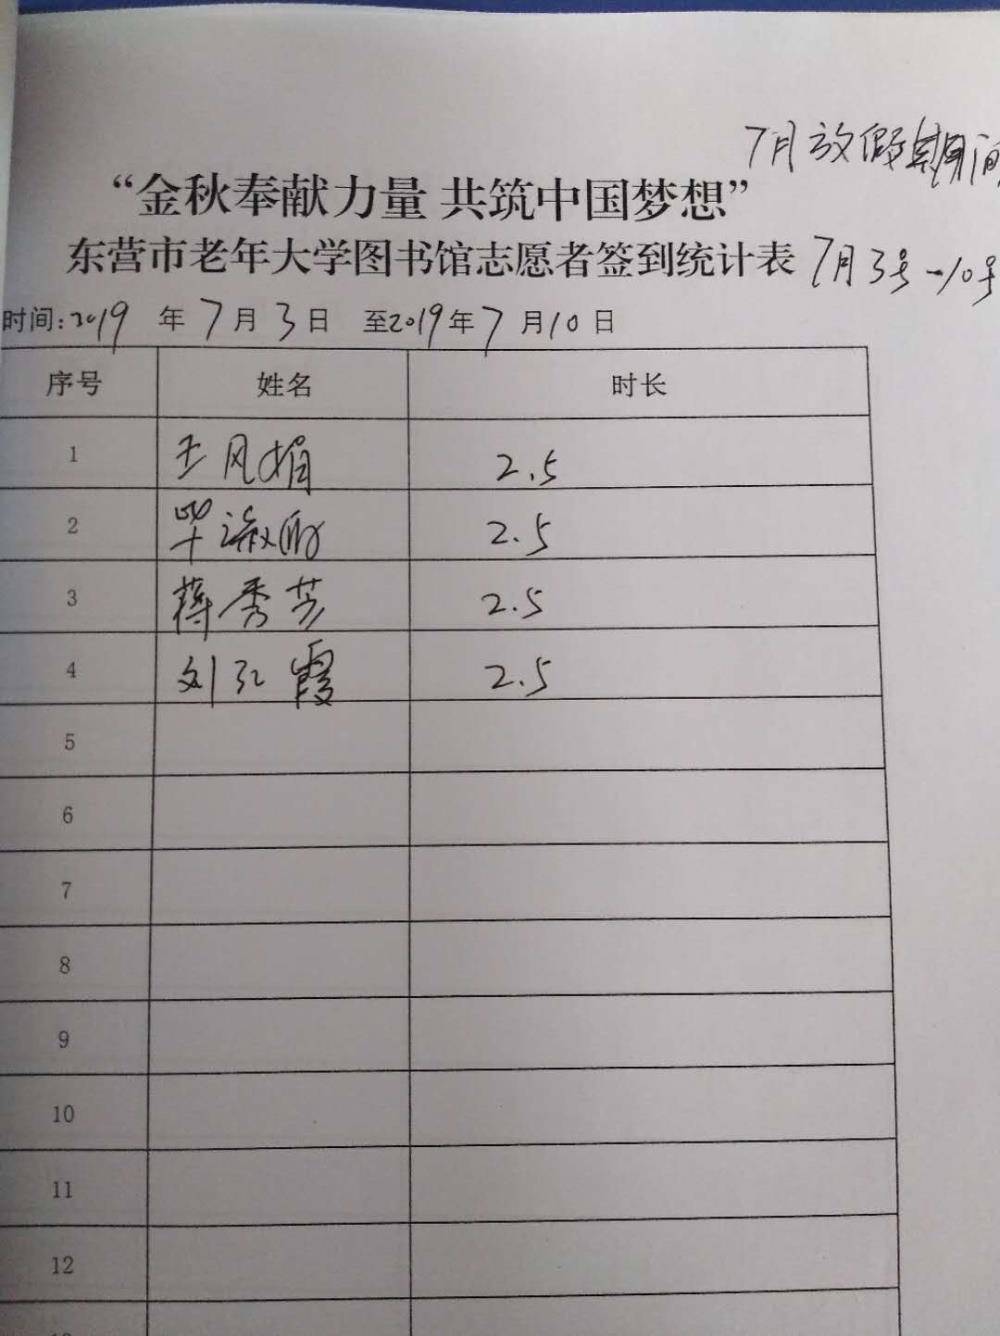 7月放假期间
“金秋奉献力量 共筑中国梦想”
东营市老年大学图书馆志愿者签到统计表 7月3号-10号
时间:2019 年 7 月 3 日 至2019年 7 月 10 日
序号 姓名 时长
1 王风娟 2.5
2 毕淑 2.5
3 蒋秀芳 2.5
4 刘红霞 2.5
5
6
7
8
9
10
11
12